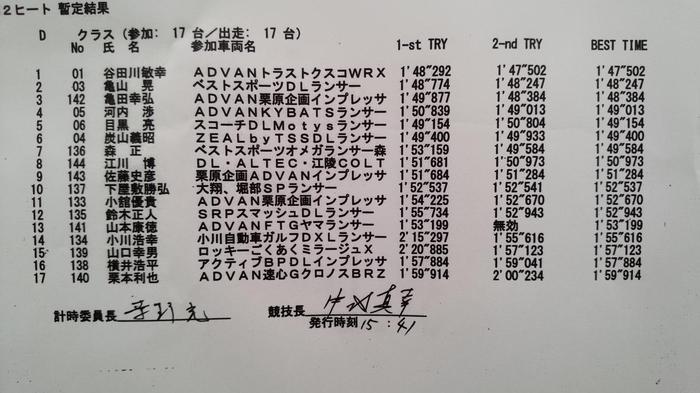 2ヒート 暫定結果
D クラス(参加: 17 台/出走: 17 台)
No 氏 名 参加車両名 1-st TRY 2-nd TRY BEST TIME
1 01 谷田川敏幸 ADVANトラストクスコWRX 1'48"292 1'47"502 1'47"502
2 03 亀山 晃 ベストスポーツDLランサー 1'48"774 1'48"247 1'48"247
3 142 亀田幸弘 ADVAN栗原企画インプレッサ 1'49"877 1'48"384 1'48"384
4 05 河内 渉 ADVANKYBATSランサー 1'50"839 1'49"013 1'49"013
5 06 目黒 亮 スコーチDLMotysランサー 1'49"154 1'50"804 1'49"154
6 04 炭山義昭 ZEALbyTSSDLランサー 1'49"400 1'49"933 1'49"400
7 136 森 正 ベストスポーツオメガランサー森 1'53"159 1'49"584 1'49"584
8 144 江川 博 DL・ALTEC・江陵COLT 1'51"681 1'50"973 1'50"973
9 143 佐藤史彦 栗原企画ADVANインプレッサ 1'51"684 1'51"284 1'51"284
10 137 下屋敷勝弘 大翔、堀部SPランサー 1'52"537 1'52"541 1'52"537
11 133 小舘優貴 ADVAN栗原企画インプレッサ 1'54"225 1'52"670 1'52"670
12 135 鈴木正人 SRPスマッシュDLランサー 1'55"734 1'52"943 1'52"943
13 141 山本康徳 ADVANFTGヤマランサー 1'53"199 無効 1'53"199
14 134 小川浩幸 小川自動車ガルフDXLランサー 2'15"297 1'55"616 1'55"616
15 139 山口幸男 ロッキーごくあくミラージュX 2'20"885 1'57"123 1'57"123
16 138 横井浩平 アクティブBPDLインプレッサ 1'57"884 1'59"041 1'57"884
17 140 栗本利也 ADVAN速心GクロノスBRZ 1'59"914 2'00"234 1'59"914
計時委員長 競技長
発行時刻 15:41